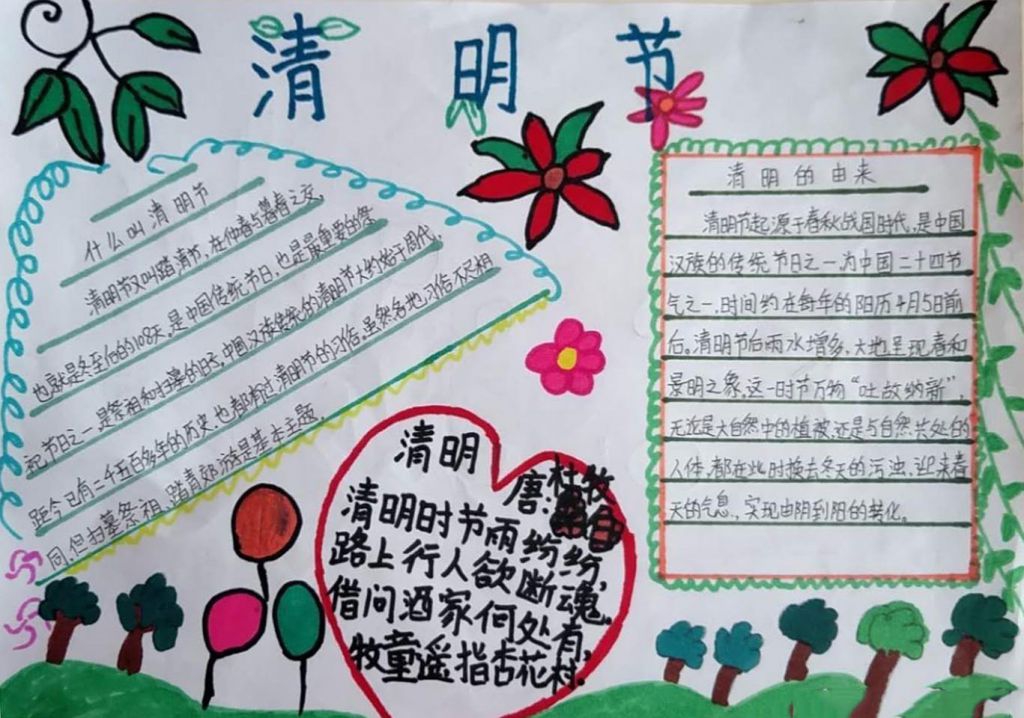 清明节
什么叫清明节
清明节又叫踏清节，在仲春与暮春之交，
也就是冬至后的108天，是中国传统节日，也是最重要的祭
祀节日之一，是祭祖和扫墓的日子，中国汉族传统的清明节大约始于周代，
距今已有二千五百多年的历史，也都有过清明节的习俗，虽然各地习俗不尽相
同，但扫墓祭祖、踏青郊游是基本主题。
清明
唐：杜牧
清明时节雨纷纷，
路上行人欲断魂。
借问酒家何处有，
牧童遥指杏花村。
清明的由来
清明节起源于春秋战国时代，是中国
汉族的传统节日之一为中国二十四节
气之一，时间约在每年的阳历4月5日前
后。清明节后雨水增多，大地呈现春和
景明之象，这一时节万物“吐故纳新”
无论是大自然中的植被，还是与自然共处的
人体，都在此时换去冬天的污浊，迎来春
天的气息，实现由阴到阳的转化。